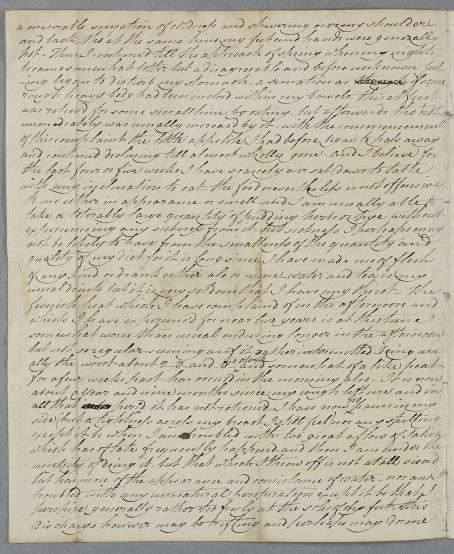 a miserable sensation of coldness and shivering over my shoulders
and back tho' at the same time my feet and hands were generally
hot. Thus I continued till the approach of spring when my nights
became somewhat better but a disagreeable and before unknown feel
ing began to disturb my stomach a sensation as if some
rough heavy body had been inclosed within my bowels. This at first
was relieved for some small time by eating but afterwards tho not
immediately was usually increas'd by it. with the commencement
of this complaint the little appetite I had before began to hals away
and continued declining till almost wholly gone and I believe for
the last four or five weeks I have scarcely ever set down to table
with any inclination to eat. the food nevertheless is not offensive
to me either in appearance or smell and I am usually able to
take a tolerably large quantity of pudding herbs or pye without
experiencing any sickness from it but sickness I perhaps may
not be likely to have from the smallness of the quantity and
quality of my diet for it is long since I have made use of flesh
of any kind or drank either ale or wine water and tea is my
usual drink but it is very seldom that I have any thirst. The
feverish heat which I have complained of in the afternoon and
which I have experienced for near two years is at this time
somewhat worse than usual enduring longer in the afternoon
but not so regular seeming as if it rather intermitted being usu
ally the worst about 2 3 and and somewhat of a like heat
for a few weeks past has occured in the morning also. It is now
about a year and nine months since my cough left me and in
all that period it has not returned I have now pains in my
side but a tightness across my breast I still feel nor any spitting
except it is when I am troubled with too great a flow of saliva
which has of late frequently happened and then I am under the
necessity of doing it but that which I throw off is not at all viscid
but has more of the appearance and consistance of water. nor am
troubled with any unnatural perspiration except it be that
perspire generally rather too freely at the soles of the feet. this
discharge however may be trifling and perhaps may do me